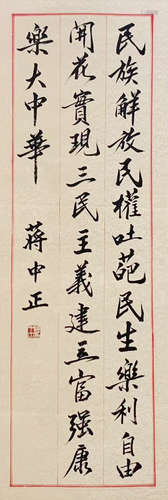 民族解放民權吐葩民生樂利自由
開花實現三民主義建立富强康
樂大中華
蔣中正